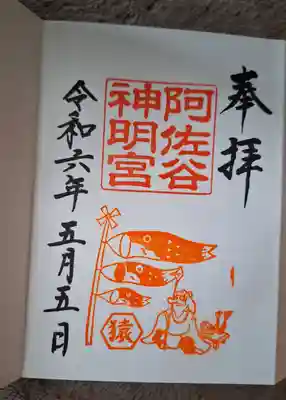 奉拝
阿佐谷
神明宮
令和六年五月五日
猿